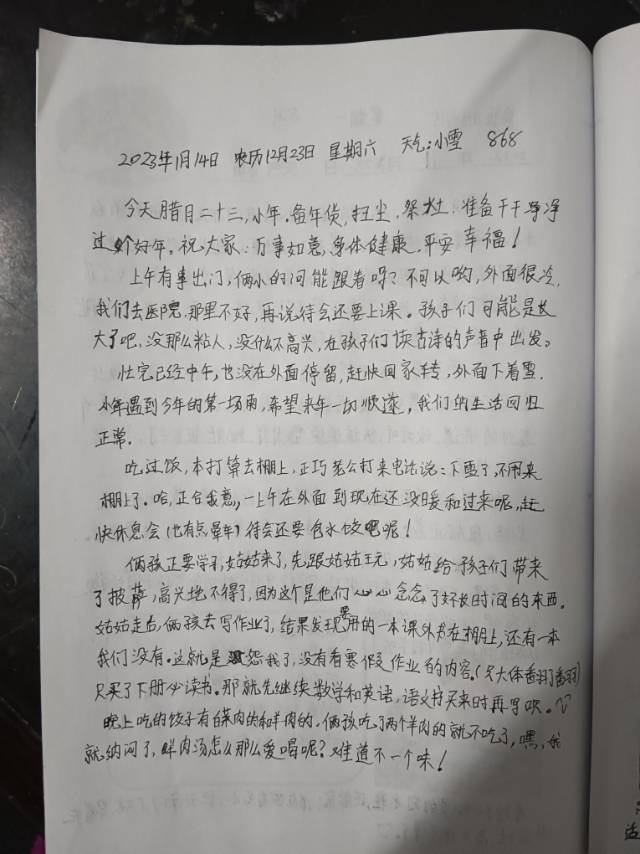 2023年1月14日 农历12月23日 星期六 天气:小雪 868
今天腊月二十三,小年,备年货,扫尘,祭灶,准备干干净净
过个好年。祝大家:万事如意,身体健康,平安幸福!
上午有事出门,俩小的问能跟着呀?不可以哟,外面很冷,
我们去医院,那里不好,再说待会还要上课。孩子们可能是长
大了吧,没那么粘人,没什么不高兴,在孩子们读古诗的声音中出发。
忙完已经中午,也没在外面停留,赶快回家转,外面下着雪.
小年遇到今年的第一场雨,希望来年一切快速,我们的生活回归
正常.
吃过饭,本打算去棚上,正巧老公打来电话说:下雪了,不用来
棚上了。哈,正合我意,一上午在外面到现在还没暖和过来呢,赶
快休息会(也有点晕车)待会还要包水饺吧呢!
俩孩正要学习,姑姑来了,先跟姑姑玩,姑姑给孩子们带来
了披萨,高兴地不得了,因为这个是他们心心念念了好长时间的东西.
姑姑走后,俩孩去写作业了,结果发现要用的一本课外书在棚上,还有一本
我们没有.这就是怨我了,没有看寒假作业的内容.(只大体翻了翻)
只买了下册必读书.那就先继续数学和英语,语文书买来时再写吹.
晚上吃的饺子有白菜肉的和羊肉的.俩孩吃了两个羊肉的就不吃了,嘿,我
就纳闷了,鲜肉汤怎么那么爱喝呢?难道不一个味!